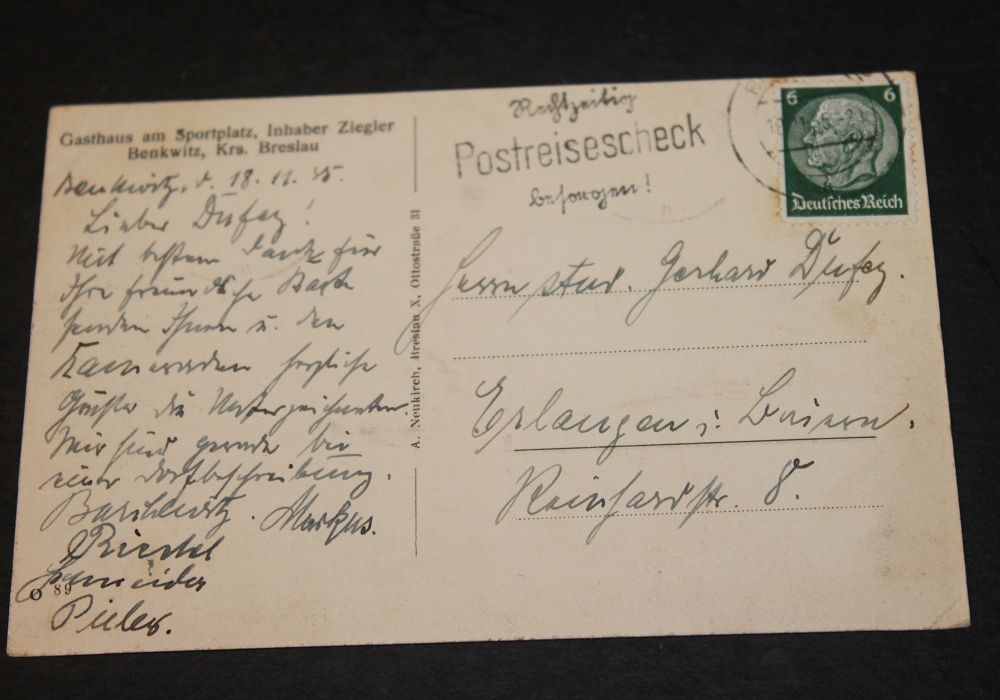 Gasthaus am Sportplatz, Inhaber Ziegler
Benkwitz, Krs. Breslau
Benkwitz, d. 18. 11. 35.
Lieber Dufey!
Mit bestem Dank für
Ihre freundliche Karte
senden Ihnen u. den
Kameraden herzliche
Grüße die Unterzeichneten.
Wir sind gerade bei
einer Dorfbeschreibung.
Markus.
Riedel
Schneider
O 89
A. Neukirch, Breslau X, Ottostraße 31
Rechtzeitig
Postreisescheck
besorgen!
6 6
Deutsches Reich
Herrn stud. Gerhard Dufey.
Erlangen i. Baiern.
Reinhardstr. 8.